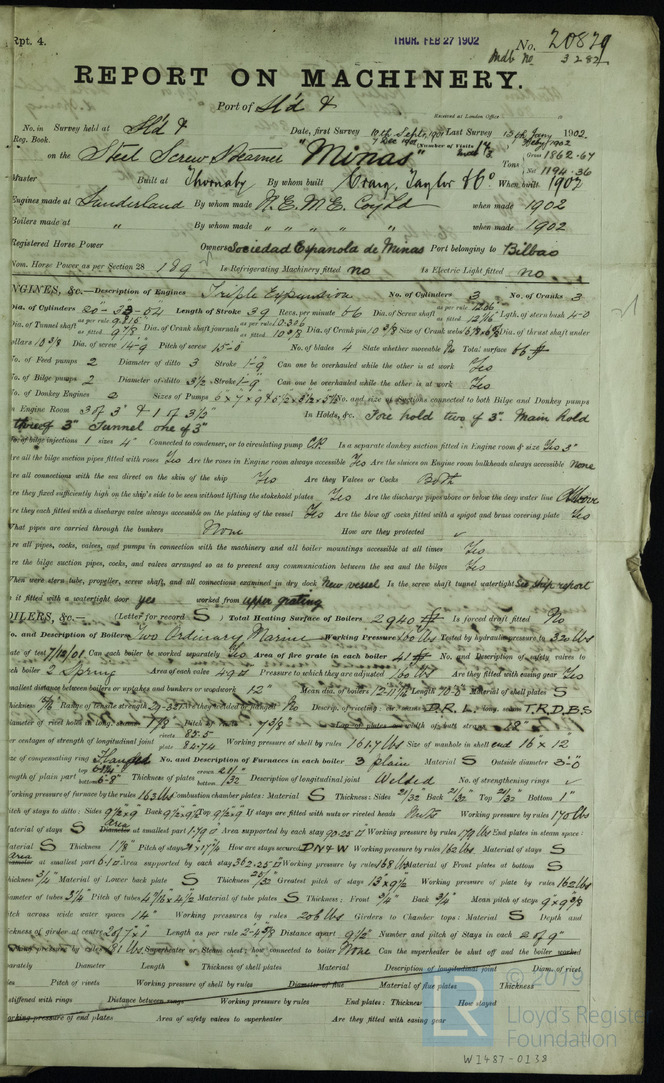 Rpt. 4.
THUR. FEB 27 1902
No. 20829
REPORT ON MACHINERY.
Port of
Received at London Office
No. in Survey held at Date, first Survey 10th Sept. 1901 Last Survey 1902.
Reg. Book. (Number of Visits
on the Steel Screw Steamer "Minas" Tons Gross 1862.67 Net 1194.36
Master Built at Thornaby By whom built Craig, Taylor & Co When built 1902
Engines made at Sunderland By whom made N.E.M.E. Coy Ld when made 1902
Boilers made at " By whom made " " " " when made 1902
Registered Horse Power Owners Sociedad Española de Minas Port belonging to Bilbao
Nom. Horse Power as per Section 28 189 Is Refrigerating Machinery fitted no Is Electric Light fitted no
ENGINES, &c.—Description of Engines Triple Expansion No. of Cylinders 3 No. of Cranks 3
Dia. of Cylinders Length of Stroke 39 Revs. per minute 66 Dia. of Screw shaft as per rule as fitted Lgth. of stern bush 4-0
Dia. of Tunnel shaft as per rule as fitted 9 7/8 Dia. of Crank shaft journals as per rule 10.306 as fitted 10 3/8 Dia. of Crank pin 10 3/8 Size of Crank webs Dia. of thrust shaft under
collars 10 3/8 Dia. of screw 14-9 Pitch of screw 15-0 No. of blades 4 State whether moveable No Total surface 66
No. of Feed pumps 2 Diameter of ditto 3 Stroke 1-9" Can one be overhauled while the other is at work Yes
No. of Bilge pumps 2 Diameter of ditto 3 1/2 Stroke 1-9" Can one be overhauled while the other is at work Yes
No. of Donkey Engines 2 Sizes of Pumps No. and size of Suctions connected to both Bilge and Donkey pumps
In Engine Room 3 of 3" & 1 of 3 1/2" In Holds, &c. Fore hold two of 3" Main hold
three of 3" Tunnel one of 3"
No. of bilge injections 1 sizes 4" Connected to condenser, or to circulating pump C.P. Is a separate donkey suction fitted in Engine room & size Yes 3"
Are all the bilge suction pipes fitted with roses Yes Are the roses in Engine room always accessible Yes Are the sluices on Engine room bulkheads always accessible None
Are all connections with the sea direct on the skin of the ship Yes Are they Valves or Cocks Both
Are they fixed sufficiently high on the ship's side to be seen without lifting the stokehold plates Yes Are the discharge pipes above or below the deep water line Above
Are they each fitted with a discharge valve always accessible on the plating of the vessel Yes Are the blow off cocks fitted with a spigot and brass covering plate Yes
What pipes are carried through the bunkers None How are they protected ✓
Are all pipes, cocks, valves, and pumps in connection with the machinery and all boiler mountings accessible at all times Yes
Are the bilge suction pipes, cocks, and valves arranged so as to prevent any communication between the sea and the bilges Yes
When were stern tube, propeller, screw shaft, and all connections examined in dry dock New vessel Is the screw shaft tunnel watertight See ship report
Is it fitted with a watertight door yes worked from upper grating
BOILERS, &c.— (Letter for record S) Total Heating Surface of Boilers 2940 Is forced draft fitted No
No. and Description of Boilers Two Ordinary Marine Working Pressure 160 lbs Tested by hydraulic pressure to 320 lbs
Date of test 7/12/01 Can each boiler be worked separately Yes Area of fire grate in each boiler 41 No. and Description of safety valves to
each boiler 2 Spring Area of each valve 4.90 Pressure to which they are adjusted 160 lbs Are they fitted with easing gear Yes
Smallest distance between boilers or uptakes and bunkers or woodwork 12" Mean dia. of boilers Length 10-6 Material of shell plates S
Thickness Range of tensile strength Are they welded or flanged No Descrip. of riveting: cir. seams D.R.L. long. seams T.R.D.B.S
Diameter of rivet holes in long. seams Pitch of rivets 7 3/8 Lap of plates or width of butt straps
Per centages of strength of longitudinal joint rivets 85.5 plate 84.74 Working pressure of shell by rules 161.7 lbs Size of manhole in shell end 16 x 12
Size of compensating ring Flanged No. and Description of Furnaces in each boiler 3 plain Material S Outside diameter 3-0
Length of plain part top bottom 6-8" Thickness of plates crown bottom Description of longitudinal joint Welded No. of strengthening rings ✓
Working pressure of furnace by the rules 163 lbs Combustion chamber plates: Material S Thickness: Sides 21/32 Back 21/32 Top 21/32 Bottom 1"
Pitch of stays to ditto: Sides 9 1/2 x 9 Back 9 1/2 x 9 1/2 Top 9 1/2 x 9 If stays are fitted with nuts or riveted heads Nuts Working pressure by rules 170 lbs
Material of stays S Diameter Area at smallest part 1.79 Area supported by each stay 90.25 Working pressure by rules 179 lbs End plates in steam space:
Material S Thickness 1 1/8" Pitch of stays How are stays secured D N & W Working pressure by rules 162 lbs Material of stays S
Area at smallest part Area supported by each stay 362.25 Working pressure by rules 168 lbs Material of Front plates at bottom S
Thickness 3/4" Material of Lower back plate S Thickness Greatest pitch of stays 13 x 9 1/2 Working pressure of plate by rules 162 lbs
Diameter of tubes 3 1/4" Pitch of tubes Material of tube plates S Thickness: Front 3/4" Back 3/4" Mean pitch of stays 9 x 9 3/8
Pitch across wide water spaces 14" Working pressures by rules 206 lbs Girders to Chamber tops: Material S Depth and
thickness of girder at centre Length as per rule Distance apart 9 1/2 Number and pitch of Stays in each 2 of 9"
Working pressure by rules 181 lbs Superheater or Steam chest; how connected to boiler None Can the superheater be shut off and the boiler worked
separately Diameter Length Thickness of shell plates Material Description of longitudinal joint Diam. of rivet
holes Pitch of rivets Working pressure of shell by rules Diameter of flue Material of flue plates Thickness
If stiffened with rings Distance between rings Working pressure by rules End plates: Thickness How stayed
Working pressure of end plates Area of safety valves to superheater Are they fitted with easing gear
© 2019
LR
Lloyd's Register
Foundation
W1487-0138